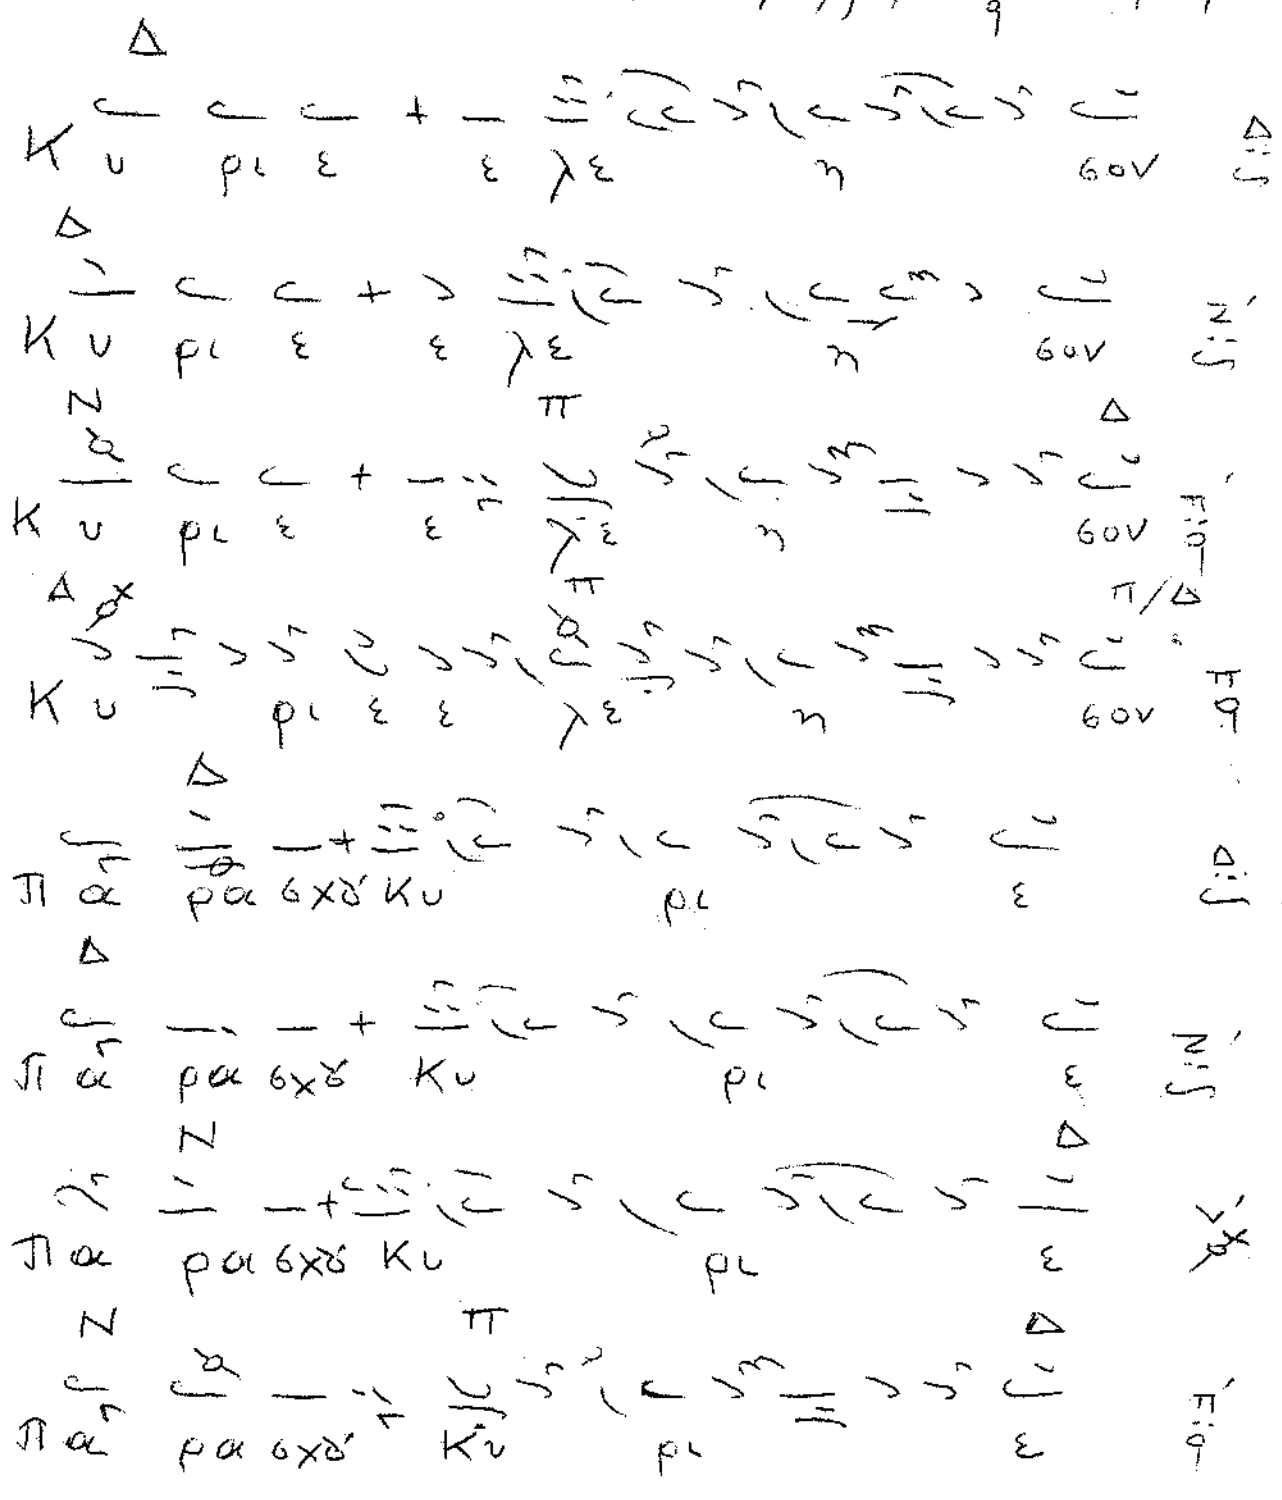 Δ
Κύ ρι ε ε λέ η σον
Δ
Κυ ρι ε ε λε η σον
Ν π Δ
Κυ ρι ε ε λε η σον
Δ π π/Δ
Κυ ρι ε ε λε η σον
Δ
Πα ρα σχȣ Κυ ρι ε
Δ
Πα ρα σχȣ Κυ ρι ε
Ν Δ
Πα ρα σχȣ Κυ ρι ε
Ν π Δ
Πα ρα σχȣ Κυ ρι ε